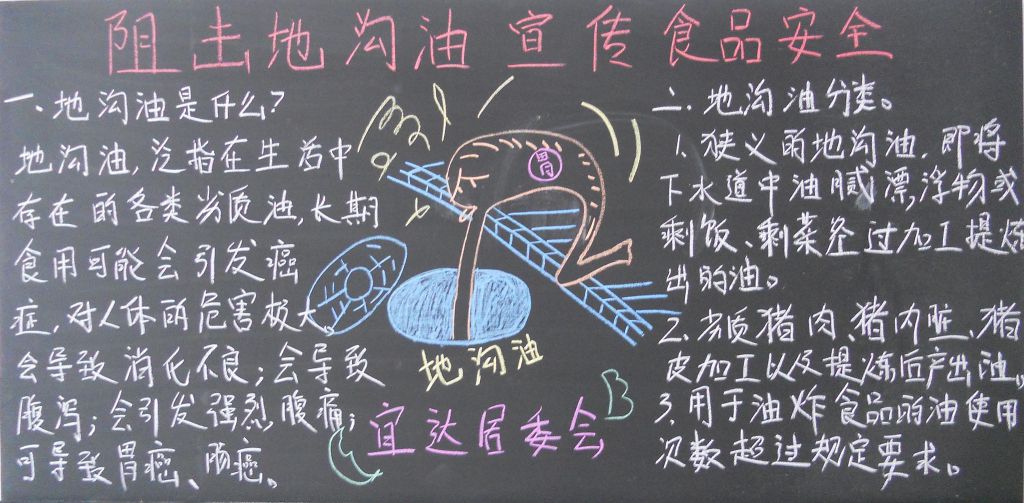 阻击地沟油宣传食品安全
一、地沟油是什么?
地沟油,泛指在生活中
存在的各类劣质油,长期
食用可能会引发癌
症,对人体的危害极大,
会导致消化不良;会导致
腹泻;会引发强烈腹痛;
可导致胃癌、肠癌。
胃
地沟油
宜达居委会
二、地沟油分类。
1、狭义的地沟油,即将
下水道中油腻漂浮物或
剩饭、剩菜经过加工提炼
出的油。
2、劣质猪肉、猪内脏、猪
皮加工以及提炼后产出油。
3、用于油炸食品的油使用
次数超过规定要求。